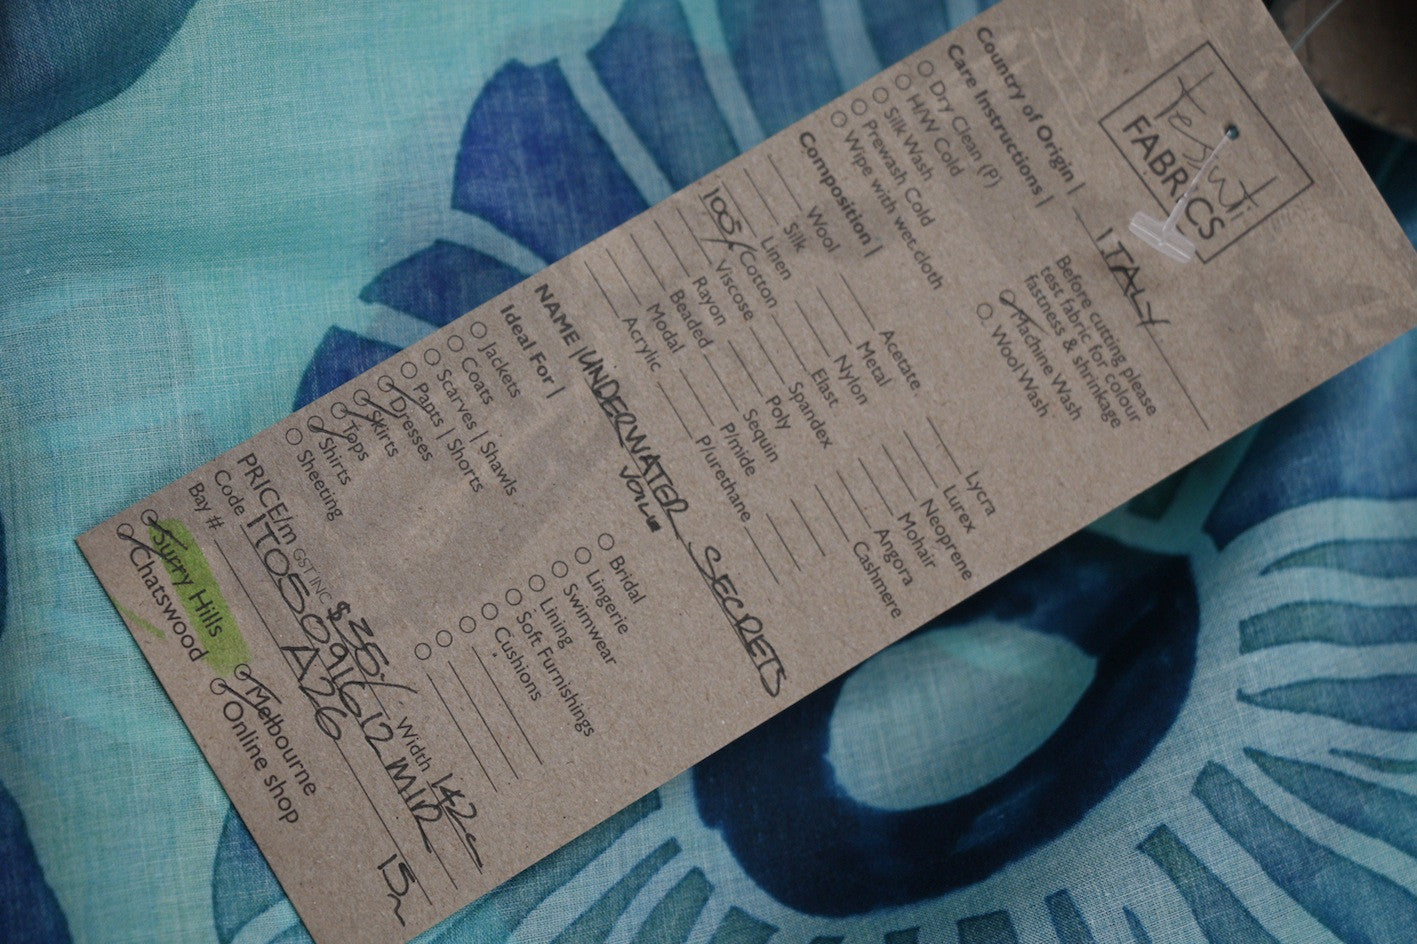 Tessuti
FABRICS
Country of Origin | ITALY
Care Instructions |
Before cutting please
test fabric for colour
fastness & shrinkage
Dry Clean (P)
H/W Cold
Silk Wash
Prewash Cold
Wipe with wet cloth
Machine Wash
Wool Wash
Composition |
Wool
Silk
Linen
100% Cotton
Viscose
Rayon
Beaded
Modal
Acrylic
Acetate
Metal
Nylon
Elast
Spandex
Poly
Sequin
P/mide
P/urethane
Lycra
Lurex
Neoprene
Mohair
Angora
Cashmere
NAME | UNDERWATER SECRETS
VOILE
Ideal For |
Jackets
Coats
Scarves | Shawls
Pants | Shorts
Dresses
Skirts
Tops
Shirts
Sheeting
Bridal
Lingerie
Swimwear
Lining
Soft Furnishings
Cushions
PRICE/m GST INC $35/- Width 142cm
Code
Bay # A26 15m
Surry Hills
Chatswood
Melbourne
Online shop